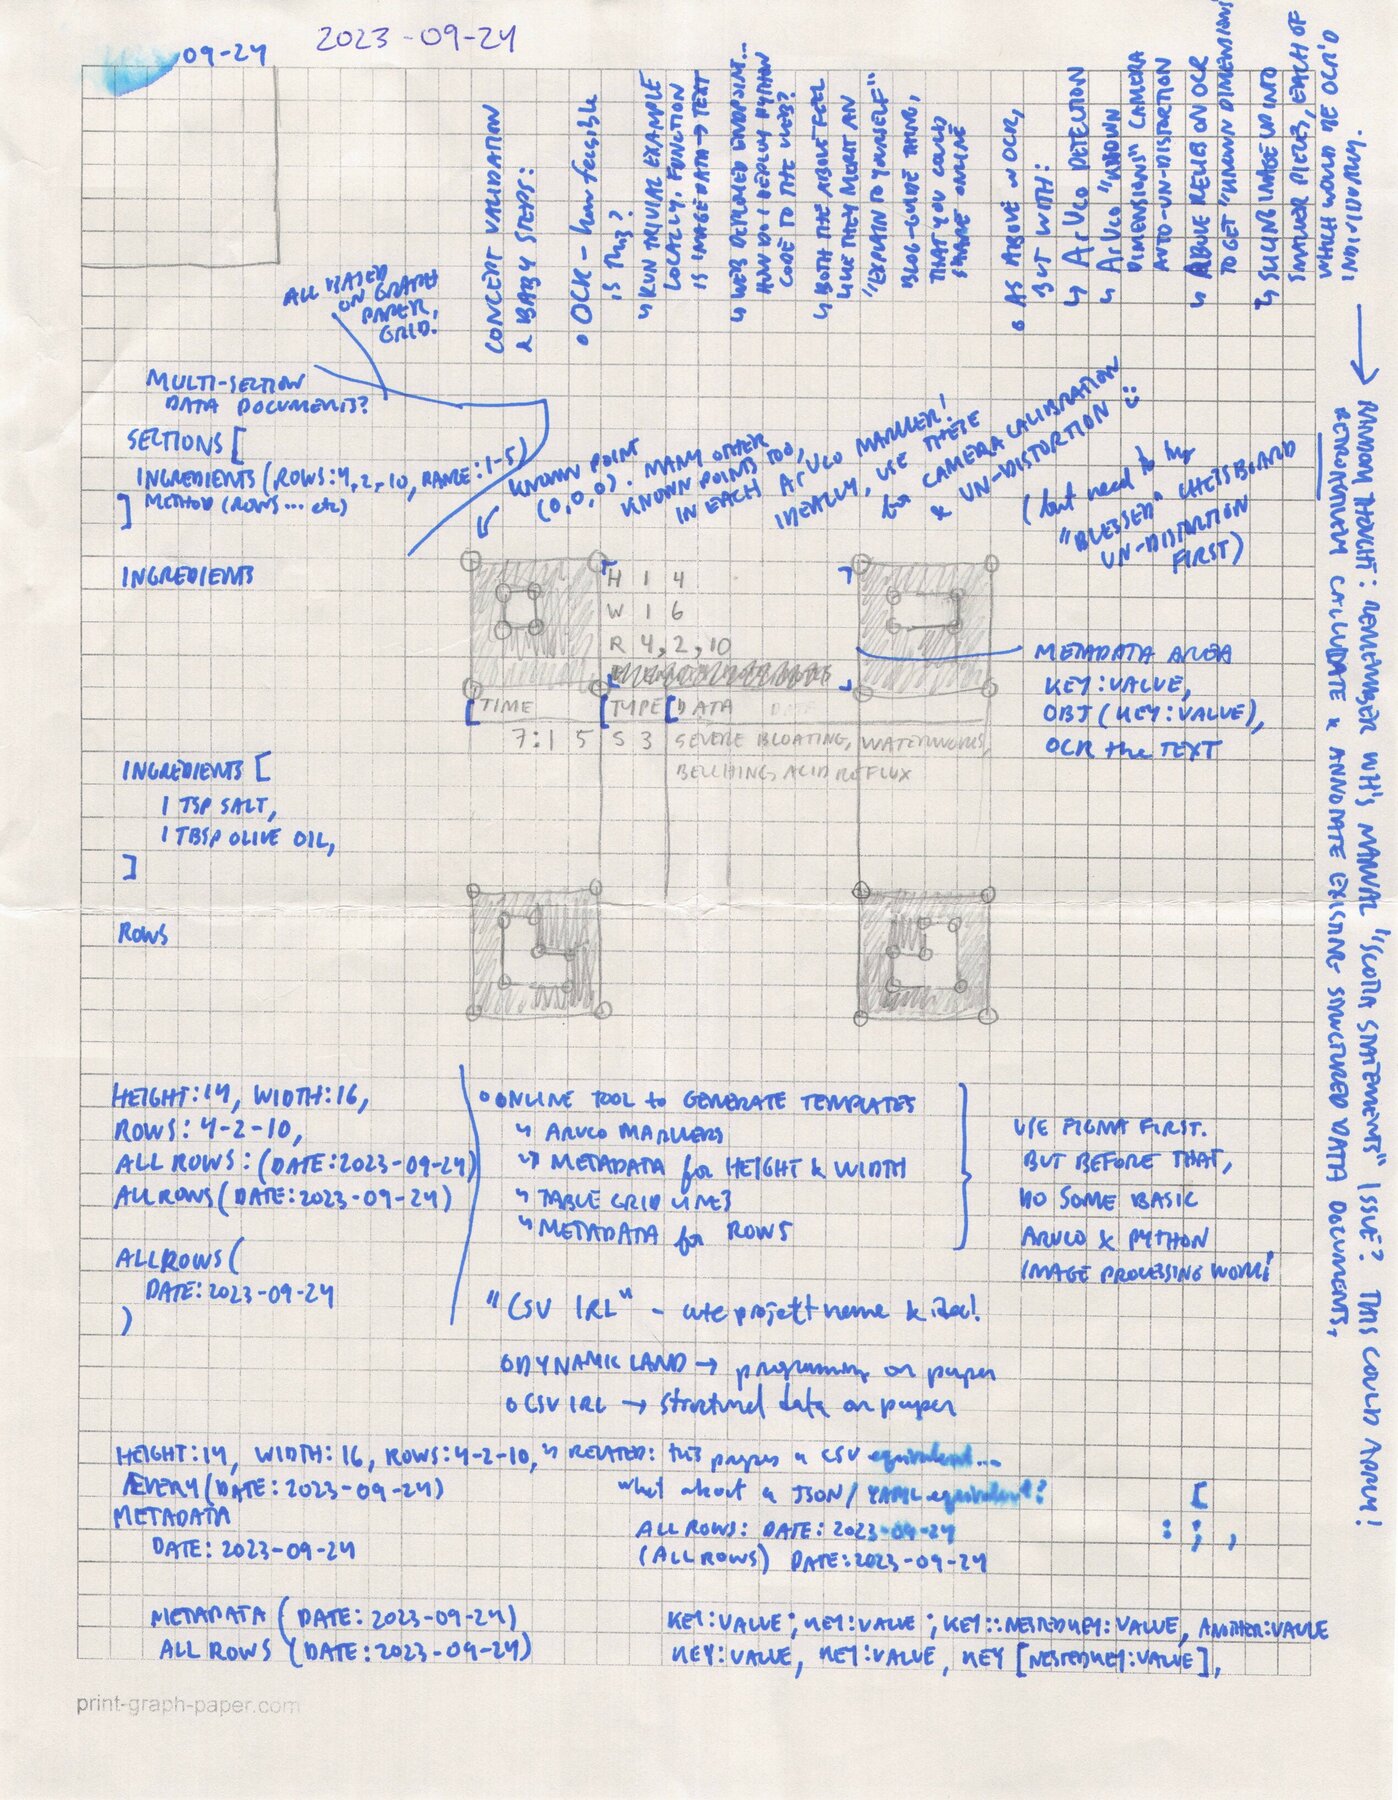 09-24
2023-09-24
CONCEPT VALIDATION
& BABY STEPS:
• OCR - how feasible
is this?
↳ RUN TRIVIAL EXAMPLE
LOCALLY. FUNCTION
IS IMAGE DATA → TEXT
↳ WEB DEPLOYED ENDPOINT...
HOW DO I DEPLOY PYTHON
CODE TO THE WEB?
↳ BOTH THE ABOVE FEEL
LIKE THEY MERIT AN
"EXPLAIN TO YOURSELF"
BLOG-GUIDE THING,
THAT YOU COULD
SHARE ONLINE
• AS ABOVE w OCR,
BUT WITH:
↳ ArUco DETECTION
↳ ArUco "KNOWN
DIMENSIONS" CAMERA
AUTO-UN-DISTORTION
↳ ABOVE RELIES ON OCR
TO GET "KNOWN DIMENSIONS"
↳ SLICING IMAGE UP INTO
SMALLER PIECES, EACH OF
WHICH WOULD BE OCR'D
INDIVIDUALLY.
→ RANDOM THOUGHT: REMEMBER WH'S MANUAL "SCOTIA STATEMENTS" ISSUE? THIS COULD APPLY!
RETROACTIVELY CALIBRATE & ANNOTATE EXISTING STRUCTURED DATA DOCUMENTS,
ALL BASED
ON GRAPH
PAPER,
GRID.
MULTI-SECTION
DATA DOCUMENTS?
SECTIONS [
INGREDIENTS (ROWS:4,2,10, RANGE:1-5)
] METHOD (ROWS... etc)
KNOWN POINT
(0,0,0). MANY OTHER
KNOWN POINTS TOO,
IN EACH ArUco MARKER!
IDEALLY, USE THESE
for CAMERA CALIBRATION
& UN-DISTORTION :)
(but need to try
"BLESSED" CHESSBOARD
UN-DISTORTION
FIRST)
INGREDIENTS
H 1 4
W 1 6
R 4, 2, 10
METADATA AREA
KEY:VALUE,
OBJ (KEY:VALUE),
OCR the TEXT
[TIME [TYPE [DATA
7:1 5 S 3 SEVERE BLOATING, WATERWORKS,
BELCHING, ACID REFLUX
INGREDIENTS [
1 TSP SALT,
1 TBSP OLIVE OIL,
]
ROWS
HEIGHT:14, WIDTH:16,
ROWS: 4-2-10,
ALL ROWS: (DATE:2023-09-24)
ALL ROWS (DATE:2023-09-24)
ALL ROWS (
DATE: 2023-09-24
)
• ONLINE TOOL to GENERATE TEMPLATES
↳ ARUCO MARKERS
↳ METADATA for HEIGHT & WIDTH
↳ TABLE GRID LINES
↳ METADATA for ROWS
USE FIGMA FIRST.
BUT BEFORE THAT,
DO SOME BASIC
ARUCO & PYTHON
IMAGE PROCESSING WORK!
"CSV IRL" - cute project name & idea!
• DYNAMIC LAND → programming on paper
• CSV IRL → structured data on paper
↳ RELATED: this paper is a CSV equivalent...
what about a JSON / YAML equivalent?
HEIGHT:14, WIDTH: 16, ROWS:4-2-10,
EVERY (DATE: 2023-09-24)
METADATA
DATE: 2023-09-24
[
: ; ,
ALL ROWS: DATE: 2023-09-24
(ALL ROWS) DATE:2023-09-24
METADATA (DATE: 2023-09-24)
ALL ROWS (DATE: 2023-09-24)
KEY:VALUE; KEY:VALUE; KEY::NESTEDKEY:VALUE, ANOTHER:VALUE
KEY:VALUE, KEY:VALUE, KEY [NESTEDKEY:VALUE],
print-graph-paper.com